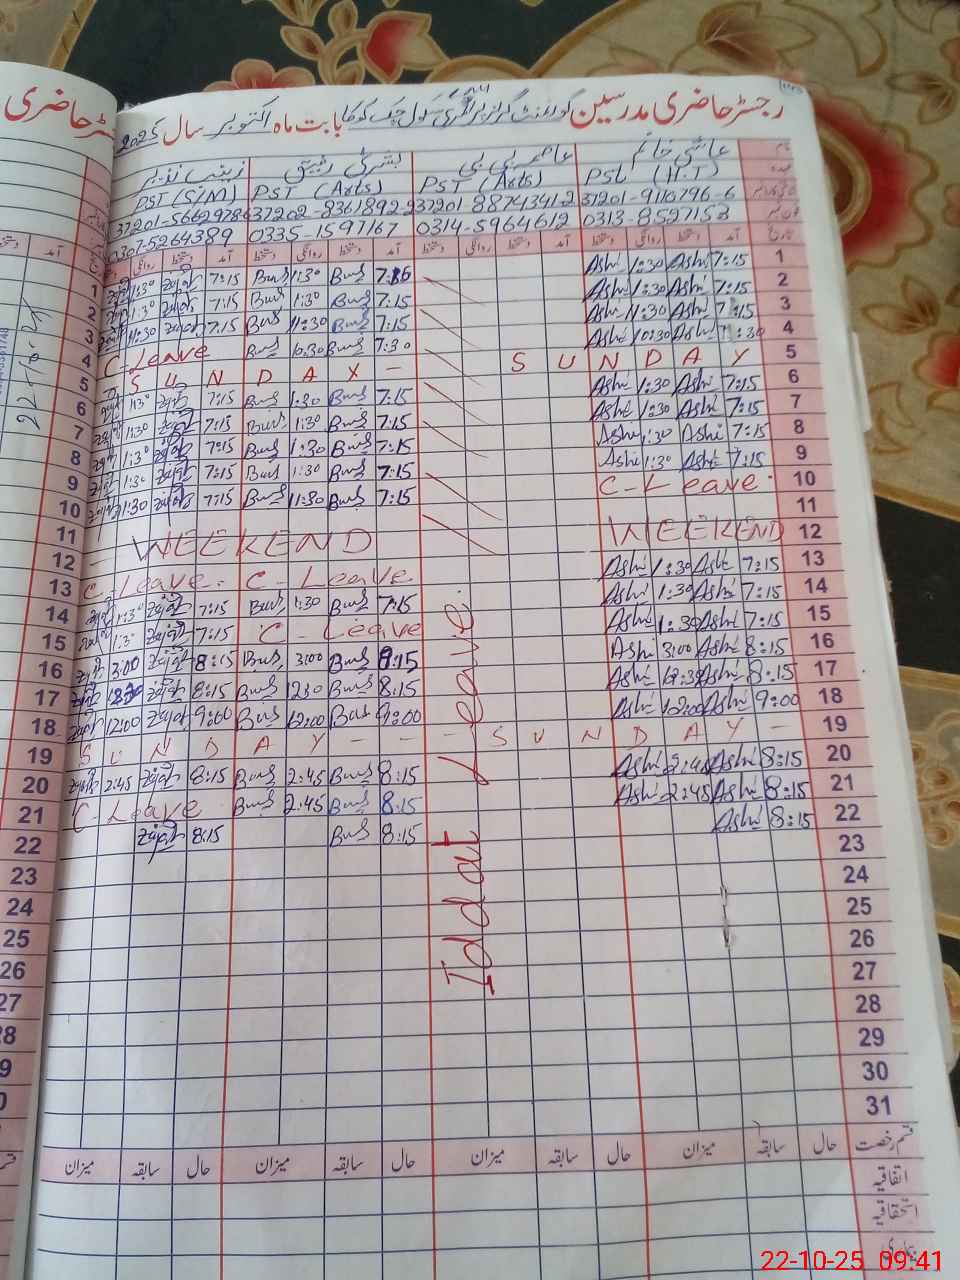 رجسٹر حاضری مدرسین گورنمنٹ گرلز پرائمری سکول چک کوکا بابت ماہ اکتوبر سال 2025
نام عاشی خانم عاصمہ بی بی بشریٰ رفیق
PST (H.T) PST (Arts) PST (Arts) PST (S/M)
37201-9110796-6 37201-8874341-2 37202-8361892-2 37201-5662978
0313-8527153 0314-5964612 0335-1597167 0307-5264389
تاریخ آمد دستخط روانگی دستخط آمد دستخط روانگی دستخط آمد دستخط روانگی دستخط آمد دستخط روانگی
1 7:15 Ashi 1:30 Ashi 7:16 Bus 1:30 Bus 7:15 1:30
2 7:15 Ashi 1:30 Ashi 7:15 Bus 1:30 Bus 7:15 1:30
3 7:15 Ashi 11:30 Ashi 7:15 Bus 11:30 Bus 7:15 11:30
4 7:30 Ashi 10:30 Ashi 7:30 Bus 10:30 Bus C-Leave
5 SUNDAY SUNDAY -
6 7:15 Ashi 1:30 Ashi 7:15 Bus 1:30 Bus 7:15 1:30
7 7:15 Ashi 1:30 Ashi 7:15 Bus 1:30 Bus 7:15 1:30
8 7:15 Ashi 1:30 Ashi 7:15 Bus 1:30 Bus 7:15 1:30
9 7:15 Ashi 1:30 Ashi 7:15 Bus 1:30 Bus 7:15 1:30
10 C-Leave. 7:15 Bus 11:30 Bus 7:15 11:30
11
12 WEEKEND WEEKEND
13 7:15 Ashi 1:30 Ashi C-Leave C-Leave.
14 7:15 Ashi 1:30 Ashi 7:15 Bus 1:30 Bus 7:15 1:30
15 7:15 Ashi 1:30 Ashi C-Leave 7:15 1:30
16 8:15 Ashi 3:00 Ashi 8:15 Bus 3:00 Bus 8:15 3:00
17 8:15 Ashi 12:30 Ashi 8:15 Bus 12:30 Bus 8:15 12:30
18 9:00 Ashi 12:00 Ashi 9:00 Bus 12:00 Bus 9:00 12:00
19 SUNDAY - SUNDAY - - -
20 8:15 Ashi 2:45 Ashi 8:15 Bus 2:45 Bus 8:15 2:45
21 8:15 Ashi 2:45 Ashi 8:15 Bus 2:45 Bus C-Leave
22 8:15 Ashi 8:15 Bus 8:15
Iddat Leave.
23
24
25
26
27
28
29
30
31
قسم رخصت حال سابقہ میزان حال سابقہ میزان حال سابقہ میزان حال سابقہ میزان
اتفاقیہ
استحقاقیہ
بیماری
22-10-25 09:41